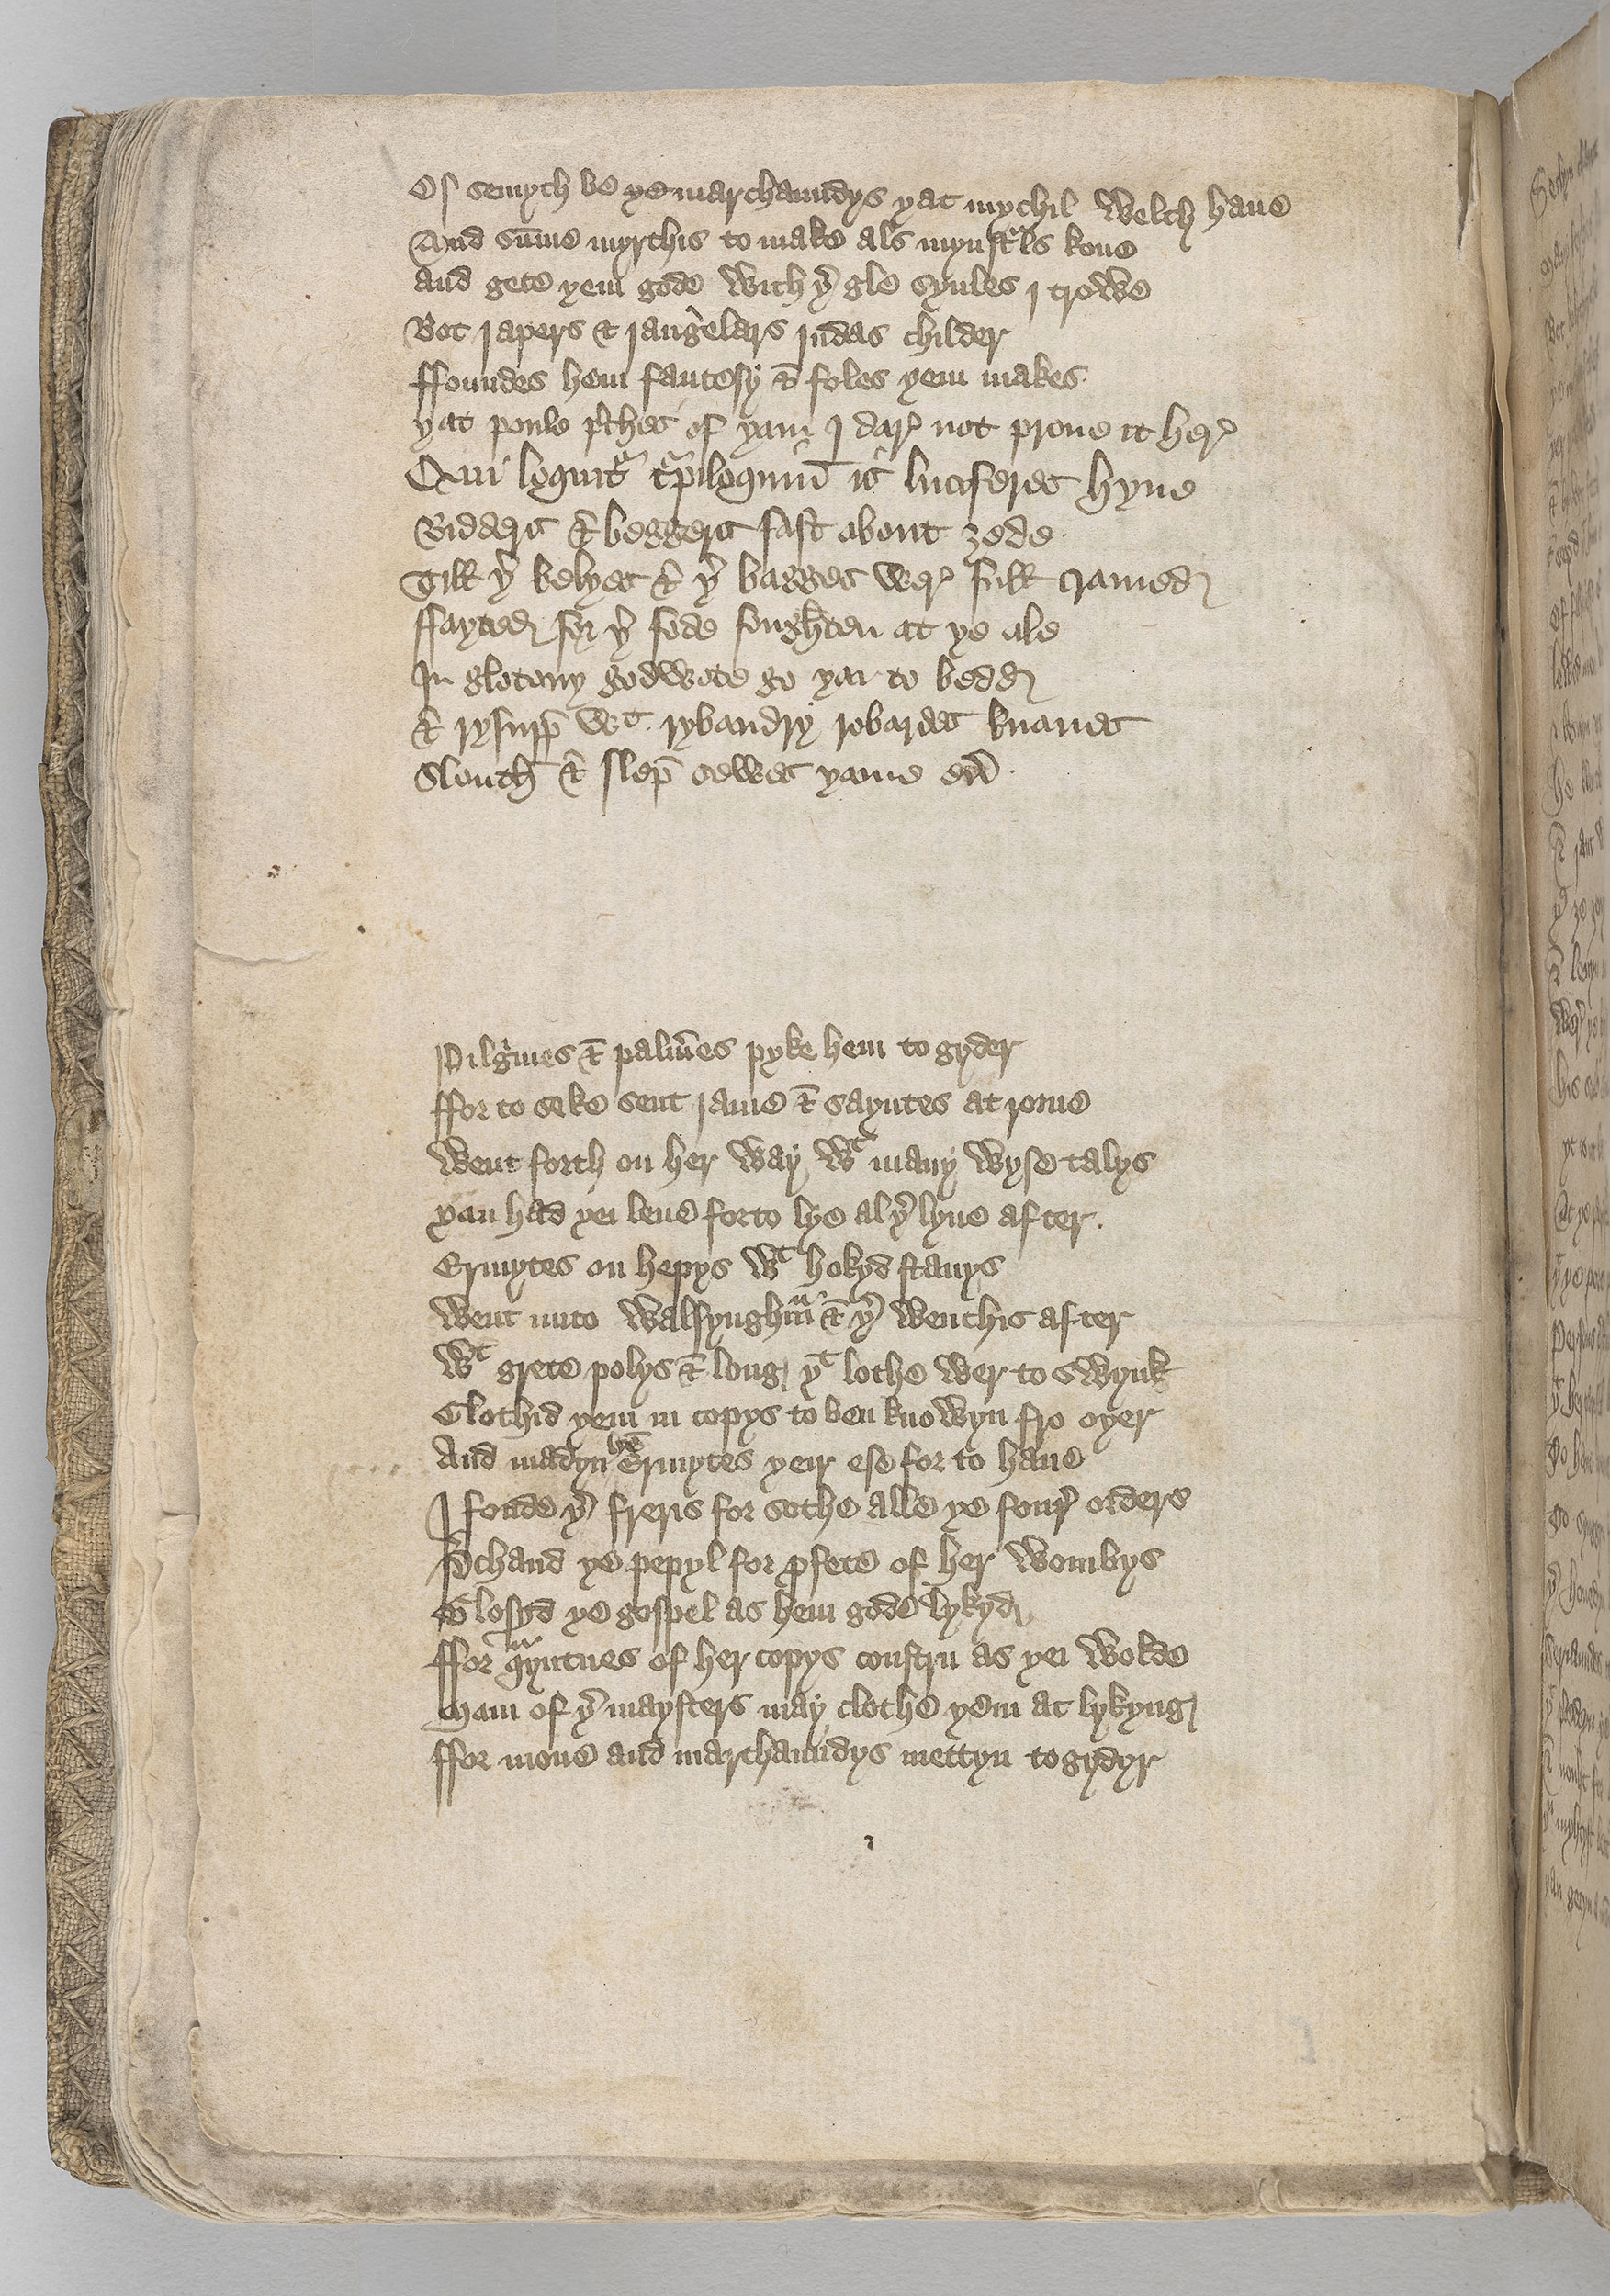 Os semyth be ye marchaundys yat mychil welth haue
And sūme myrthis to make als mynstˡls kone
and gete yem gode with yͬ gle synles j trowe
Bot japers & jangelars judas childer
ffoundes hem fantesy & foles yem makes
yat poule pˡches of yam J dar not proue it her
Qui loquitͬ tˡpiloquiū is luciferes hyne
Bidders & beggers fast about zede
Till yͬ belyes & yͬ bagges wer full cramed
ffayted for yͬ fode foughten at ye ale
In glotony godwote go yai to bedd
& rysup wᵗ rybaudry robardes knaues
Slouth & slep sewes yame eůˀ
Pilgˡmes & palm̄es pyke hem to gyder
ffor to seke sent jame & sayntes at rome
Went forth on her way wᵗ many wyse talys
yan had yei leue forto lye al yͬ lyue after
Ermytes on hepys wᵗ hokyd stauys
Went unto Walsynghᵃm & yͬ wenchis after
Wᵗ grete polys & long yᵗ lothe wer to swynk
Clothid yem in copys to ben knowyn fro oyer
And madyn hē Ermytes yeir ese for to haue
J fonde yͬ freris for sothe alle ye fourͬ orders
Pͬchand ye pepyl for ꝓfete of her wombys
Glosyd ye gospel as hem gode lykyd
ffor qᵃyntnes of her copys constru as yei wolde
Mani of yͬ maysters may clothe yem at lykyng
ffor mone and marchaundys mettyn togydyr